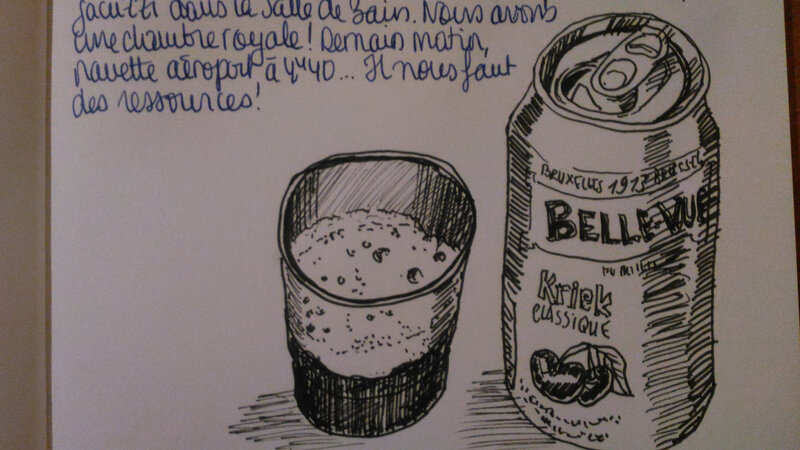 jacuzzi dans la salle de bain. Nous avons
une chambre royale! Demain matin,
navette aéroport à 4h40... Il nous faut
des ressources!
BRUXELLES 1913 BRUSSEL
BELLE-VUE
Kriek
CLASSIQUE